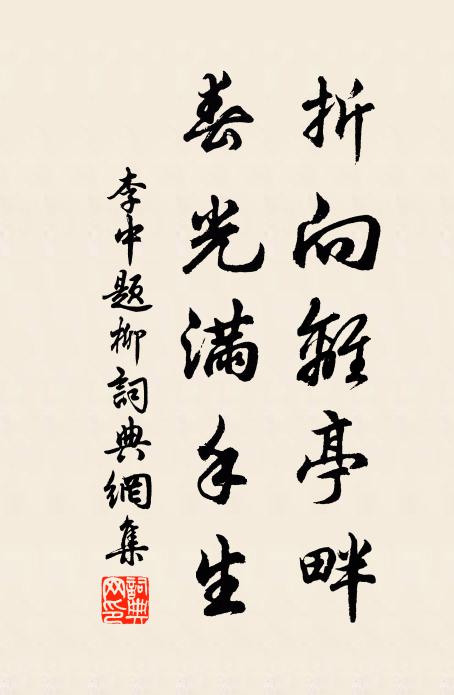 折向離亭畔
春光滿手生
李中題柳詞典網集
詞典网印